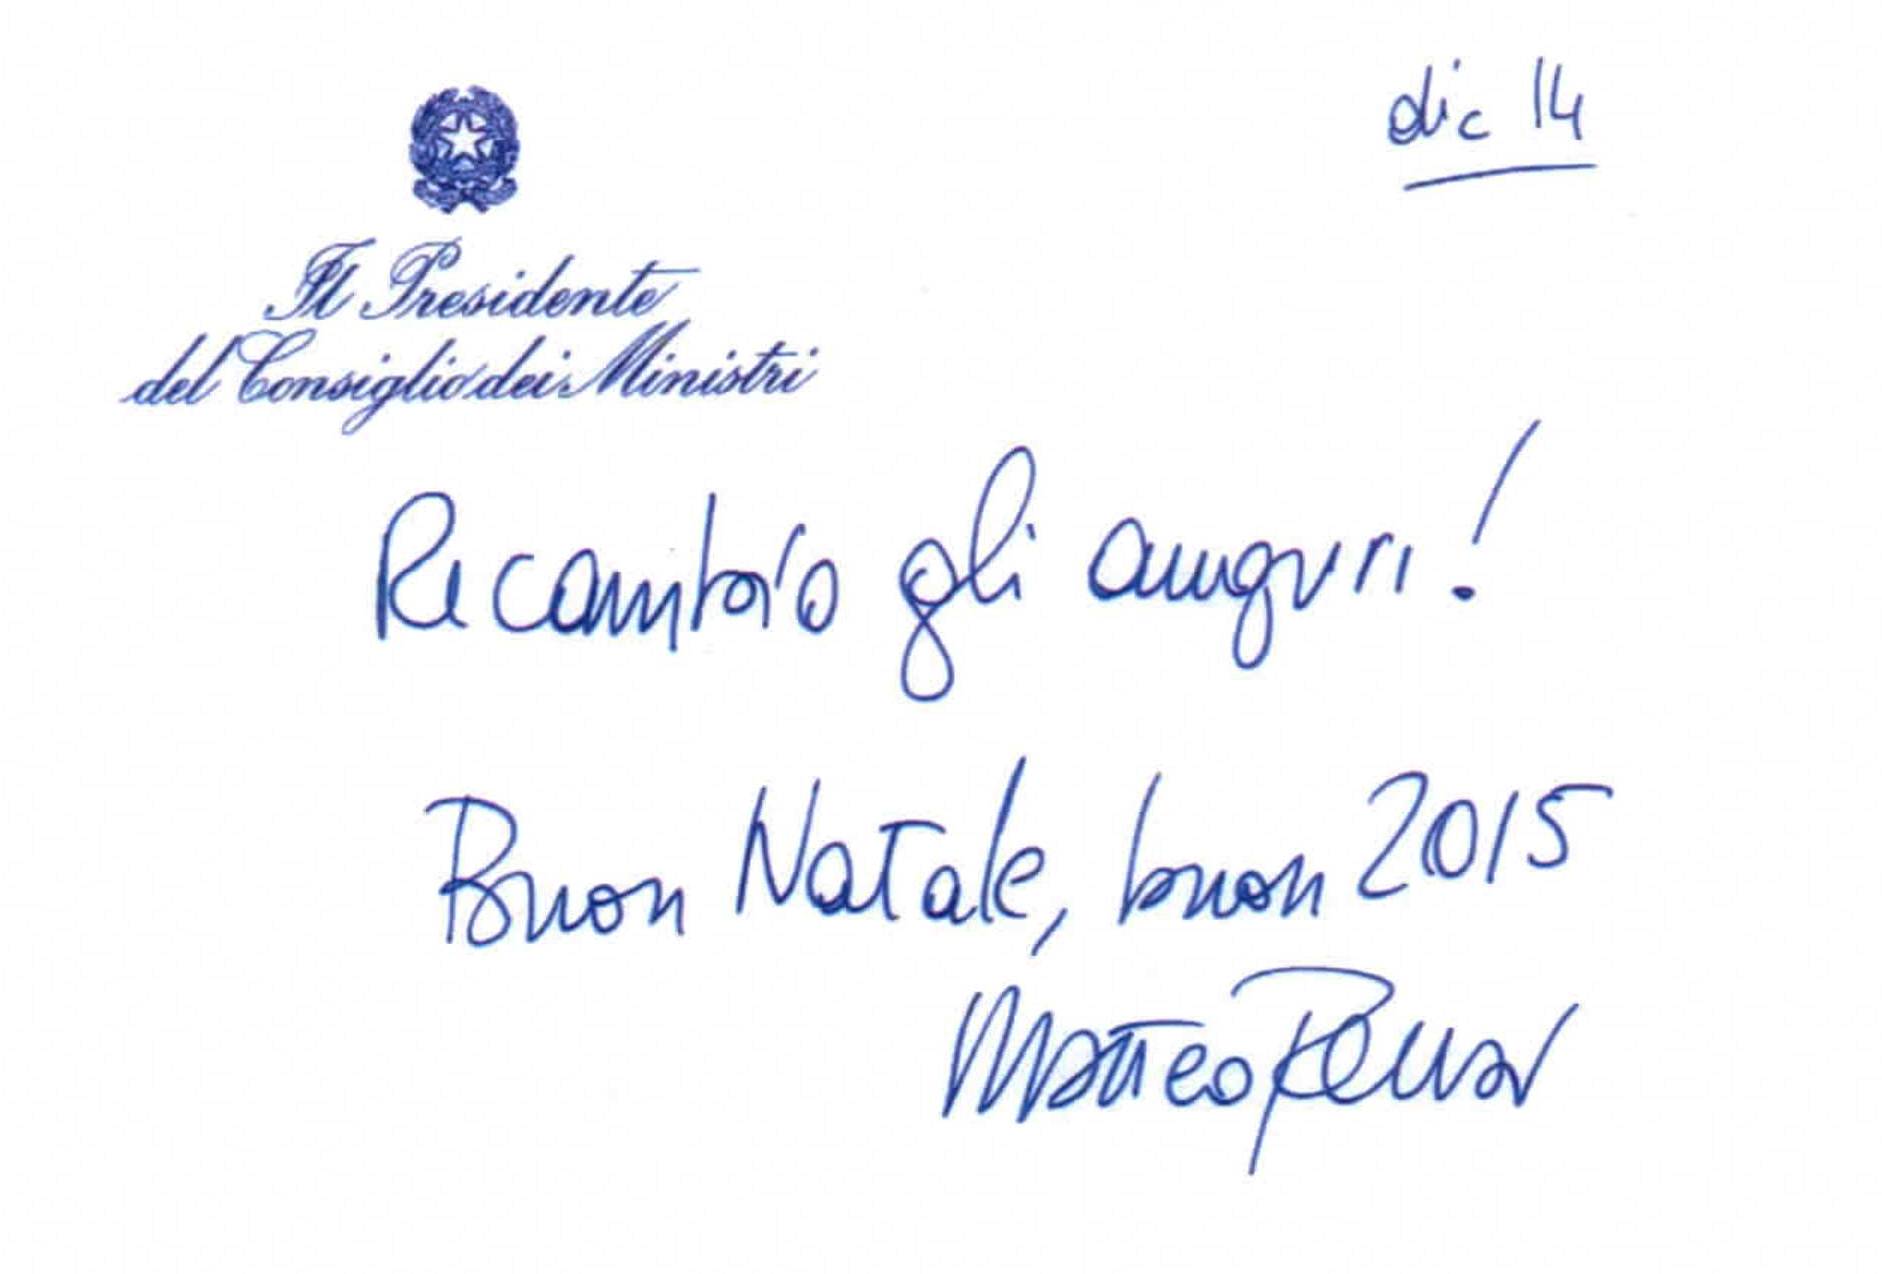 dic 14
Il Presidente
del Consiglio dei Ministri
Ricambio gli auguri!
Buon Natale, buon 2015
Matteo Renzi